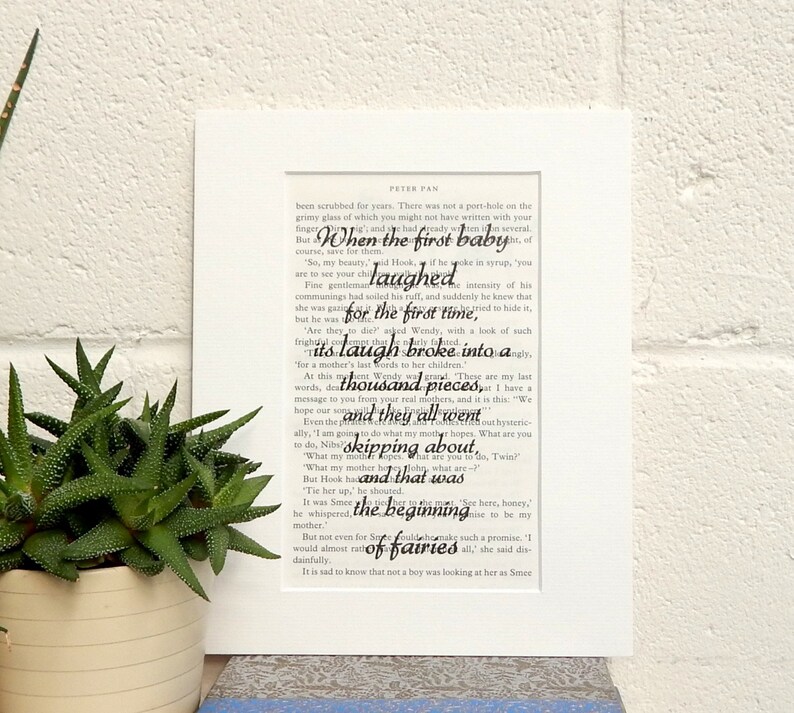 PETER PAN
been scrubbed for years. There was not a port-hole on the
grimy glass of which you might not have written with your
finger and she had already written on several.
But as
course, save for them.
'So, my beauty,' said Hook, as if he spoke in syrup, 'you
are to see your children walk the plank.'
Fine gentleman though he was, the intensity of his
communings had soiled his ruff, and suddenly he knew that
she was gazing at it. With a hasty gesture he tried to hide it,
but he was too late.
'Are they to die?' asked Wendy, with a look of such
frightful contempt that he nearly fainted.
'for a mother's last words to her children.'
At this moment Wendy was grand. 'These are my last
words, dear that I have a
message to you from your real mothers, and it is this: "We
hope our sons will die like English gentlemen."'
Even the pirates were awed, and Tootles cried out hysteric-
ally, 'I am going to do what my mother hopes. What are you
to do, Nibs?'
'What my mother hopes. What are you to do, Twin?'
'What my mother hopes. John, what are –?'
But Hook had
'Tie her up,' he shouted.
It was Smee who tied her to the mast. 'See here, honey,'
he whispered, 'I'll save you if you promise to be my
mother.'
But not even for Smee would she make such a promise. 'I
would almost rather all,' she said dis-
dainfully.
It is sad to know that not a boy was looking at her as Smee
When the first baby
laughed
for the first time,
its laugh broke into a
thousand pieces,
and they all went
skipping about,
and that was
the beginning
of fairies